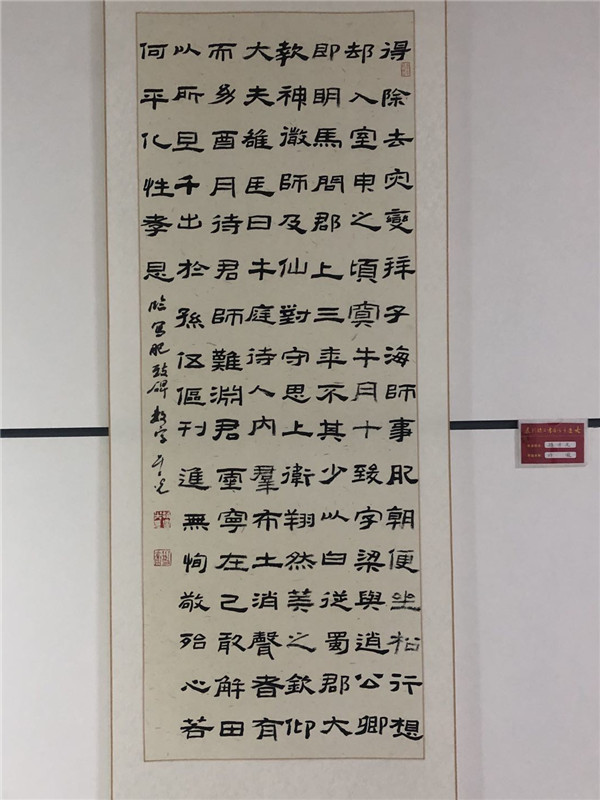 得除去灾變拜子海師事肥朝便坐松行想
却入室申之頃寞牛月十致字梁與逍公卿
即明馬間郡上三年不其少以白從蜀郡大
教神徵師及仙對守思上衛翔然美之欽仰
大夫雄匡曰牛庭待人内羣布土消聲者有
而易酉月待君師難淵君靈寧在己敢解田
以所旦千出於孫伍傴刊進無恂敬殆心若
何平化性孝恩
臨寫肥致碑數字